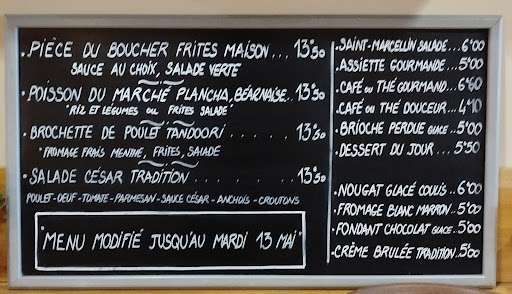 . PIÈCE DU BOUCHER FRITES MAISON... 13°50
SAUCE AU CHOIX, SALADE VERTE
. POISSON DU MARCHÉ PLANCHA, BÉARNAISE.. 13°50
"RIZ ET LEGUMES OU FRITES SALADE"
. BROCHETTE DE POULET TANDOORI...... 13°50
"FROMAGE FRAIS MENTHE, FRITES, SALADE
. SALADE CÉSAR TRADITION.......... 13°50
POULET-OEUF-TOMATE-PARMESAN-SAUCE CÉSAR-ANCHOIS-CROUTONS
"MENU MODIFIÉ JUSQU'AU MARDI 13 MAI"
. SAINT-MARCELLIN SALADE... 6°00
. ASSIETTE GOURMANDE... 5°00
. CAFÉ OU THÉ GOURMAND... 6°60
. CAFÉ OU THÉ DOUCEUR... 4°10
. BRIOCHE PERDUE GLACE. 5°00
. DESSERT DU JOUR... 5°50
. NOUGAT GLACÉ COULIS.. 6°00
. FROMAGE BLANC MARRON. 5°00
. FONDANT CHOCOLAT GLACE.. 5°00
. CRÈME BRULÉE TRADITION. 5°00